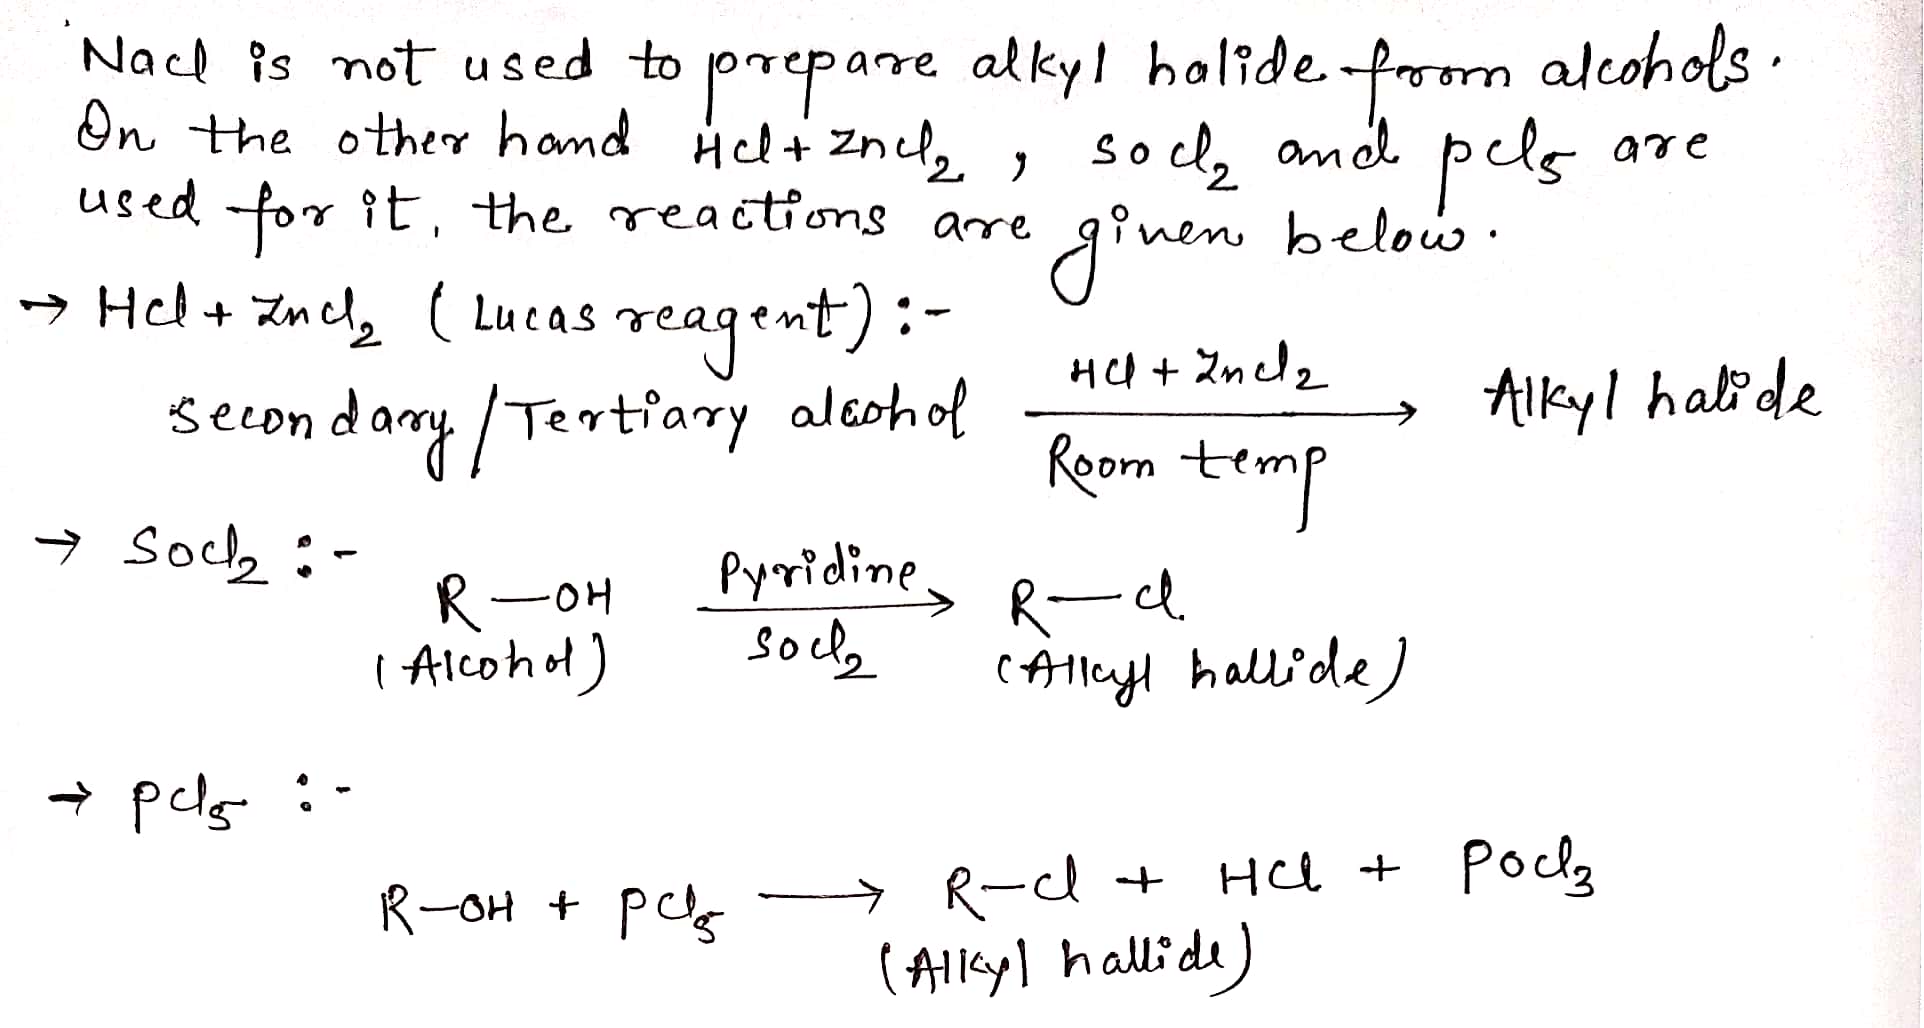 Nacl is not used to prepare alkyl halide from alcohols.
On the other hand Hcl + Zncl₂ , socl₂ and pcl₅ are
used for it, the reactions are given below.
→ Hcl + Zncl₂ ( Lucas reagent) :-
secondary / Tertiary alcohol —Hcl + Zncl₂ / Room temp→ Alkyl halide
→ Socl₂ :-
R—OH —Pyridine / socl₂→ R—cl
(Alcohol) (Alkyl hallide)
→ pcl₅ :-
R—OH + pcl₅ → R—cl + HCl + pocl₃
(Alkyl hallide)